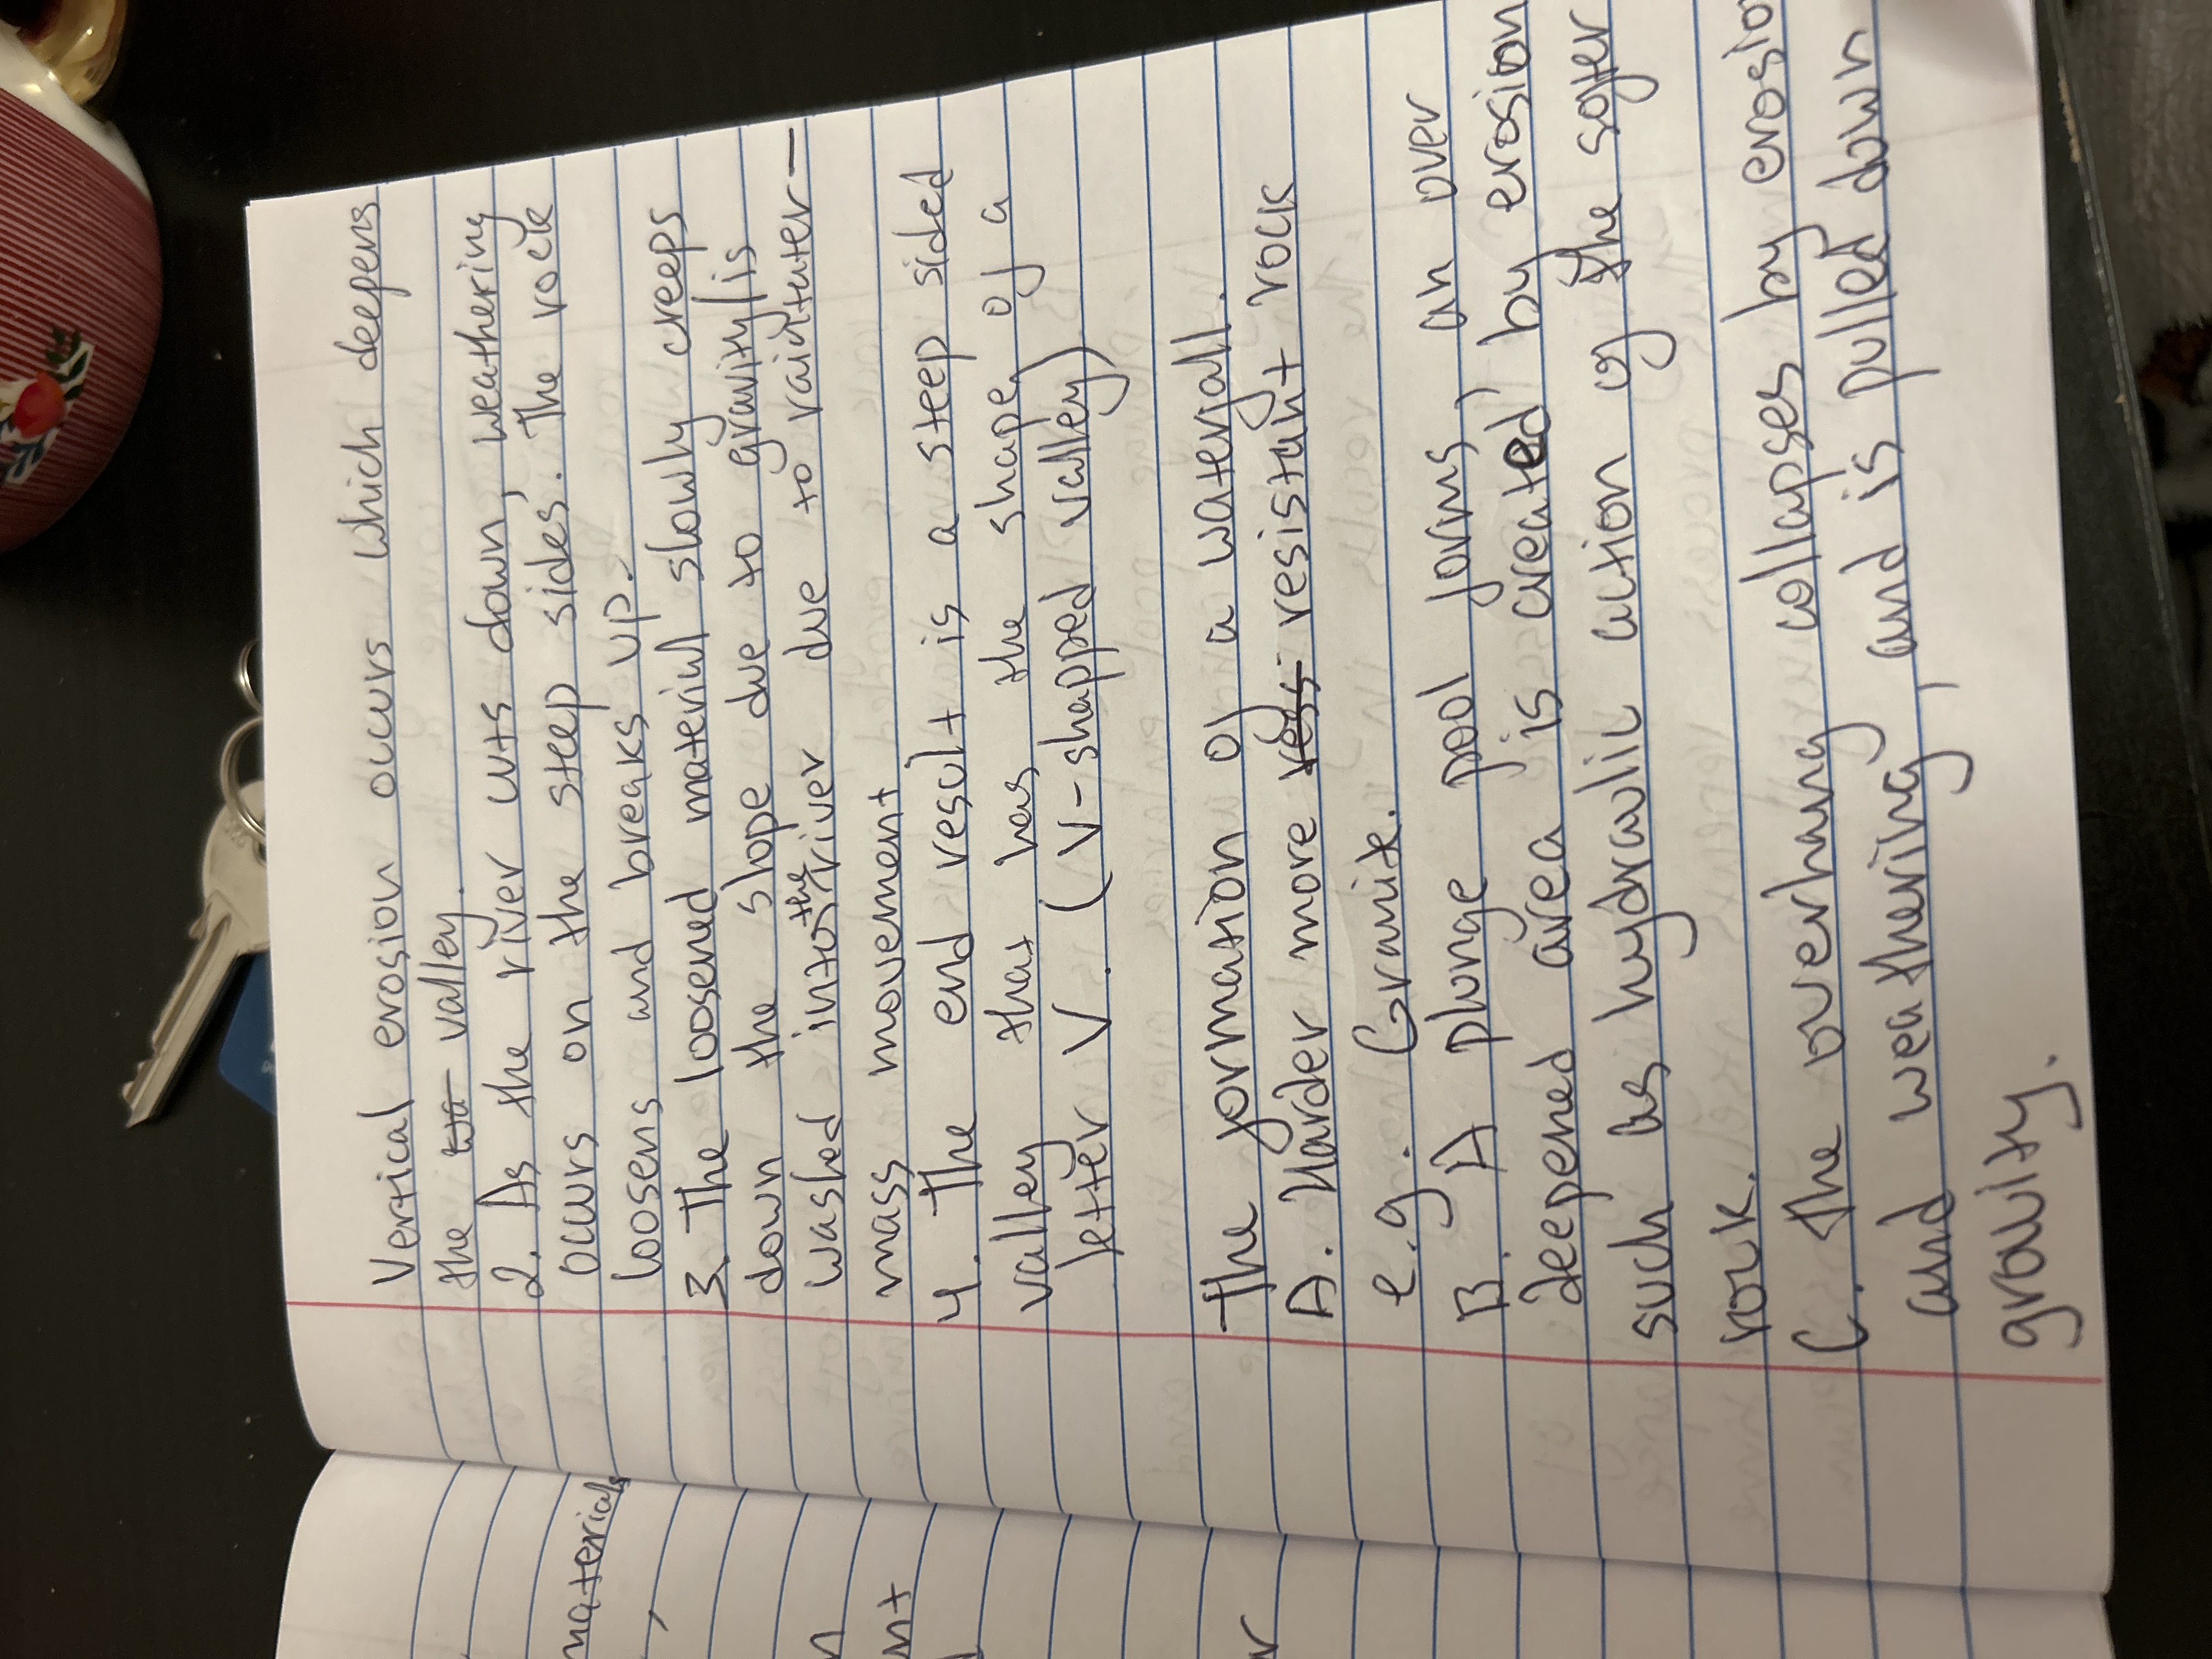 Vertical erosion occurs which deepens
the valley.
2. As the river cuts down, weathering
occurs on the steep sides. The rock
loosens and breaks up.
3. The loosened material slowly creeps
down the slope due to gravity/is
washed into the river due to rainwater —
mass movement
4. The end result is a steep sided
valley that has the shape of a
letter V. (V-shapped valley)
The formation of a waterfall.
A. Harder more resistant rock
e.g. Granite.
B. A plunge pool forms, an over
deepened area is created by erosion
such as hydraulic action of the softer
rock.
C. The overhang collapses by erosion
and weathering, and is pulled down
gravity.
materials
nt